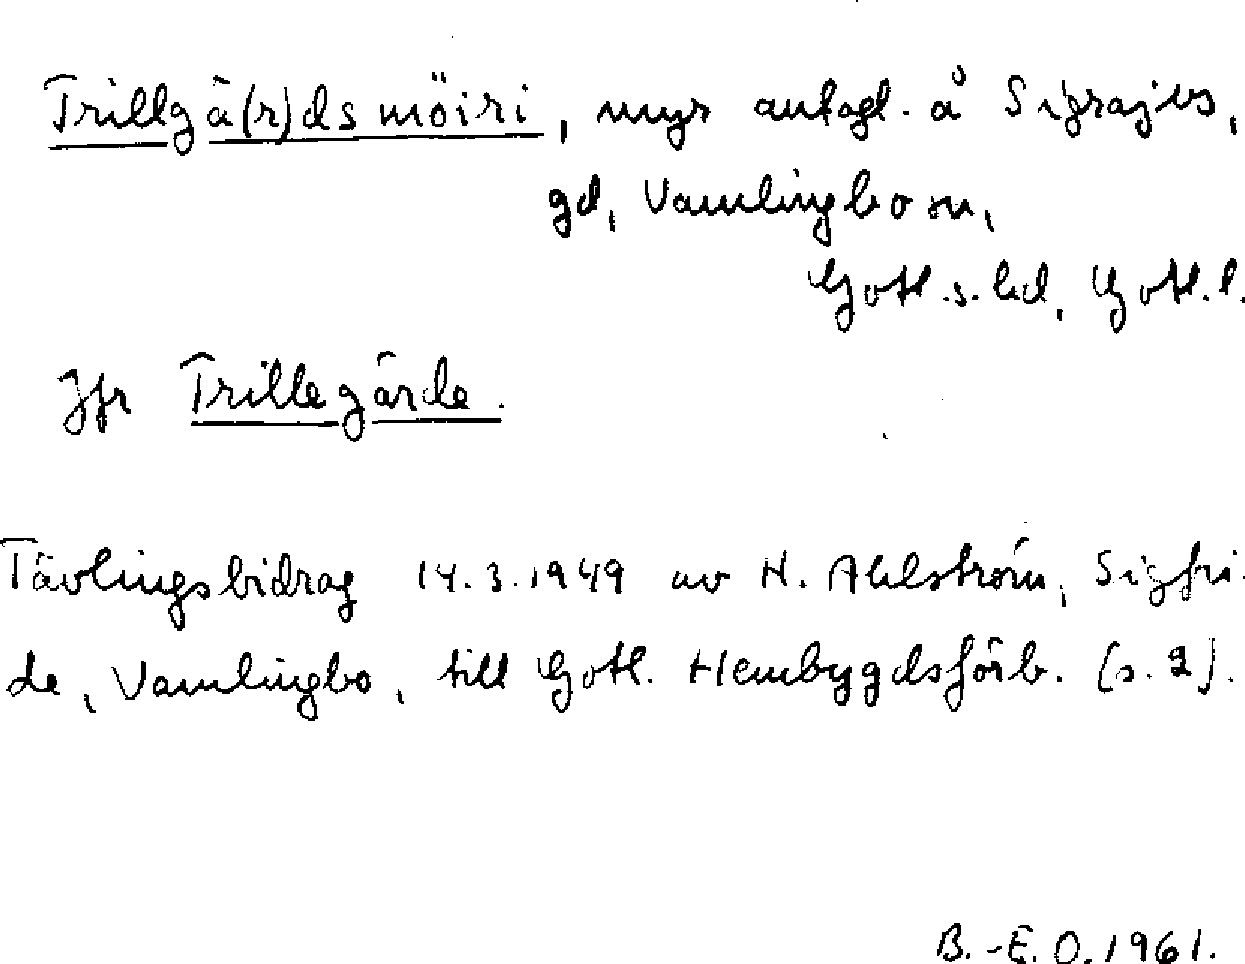 Trillgå(r)dsmöiri, myr antagl. å Sigrajvs,
gd, Vamlingbo sn,
Gotl. s. hd, Gotl. l.
Jfr Trillegärde.
Tävlingsbidrag 14.3.1949 av H. Ahlström, Sigfri-
de, Vamlingbo, till Gotl. Hembygdsförb. (s. 2).
B.-E. O. 1961.